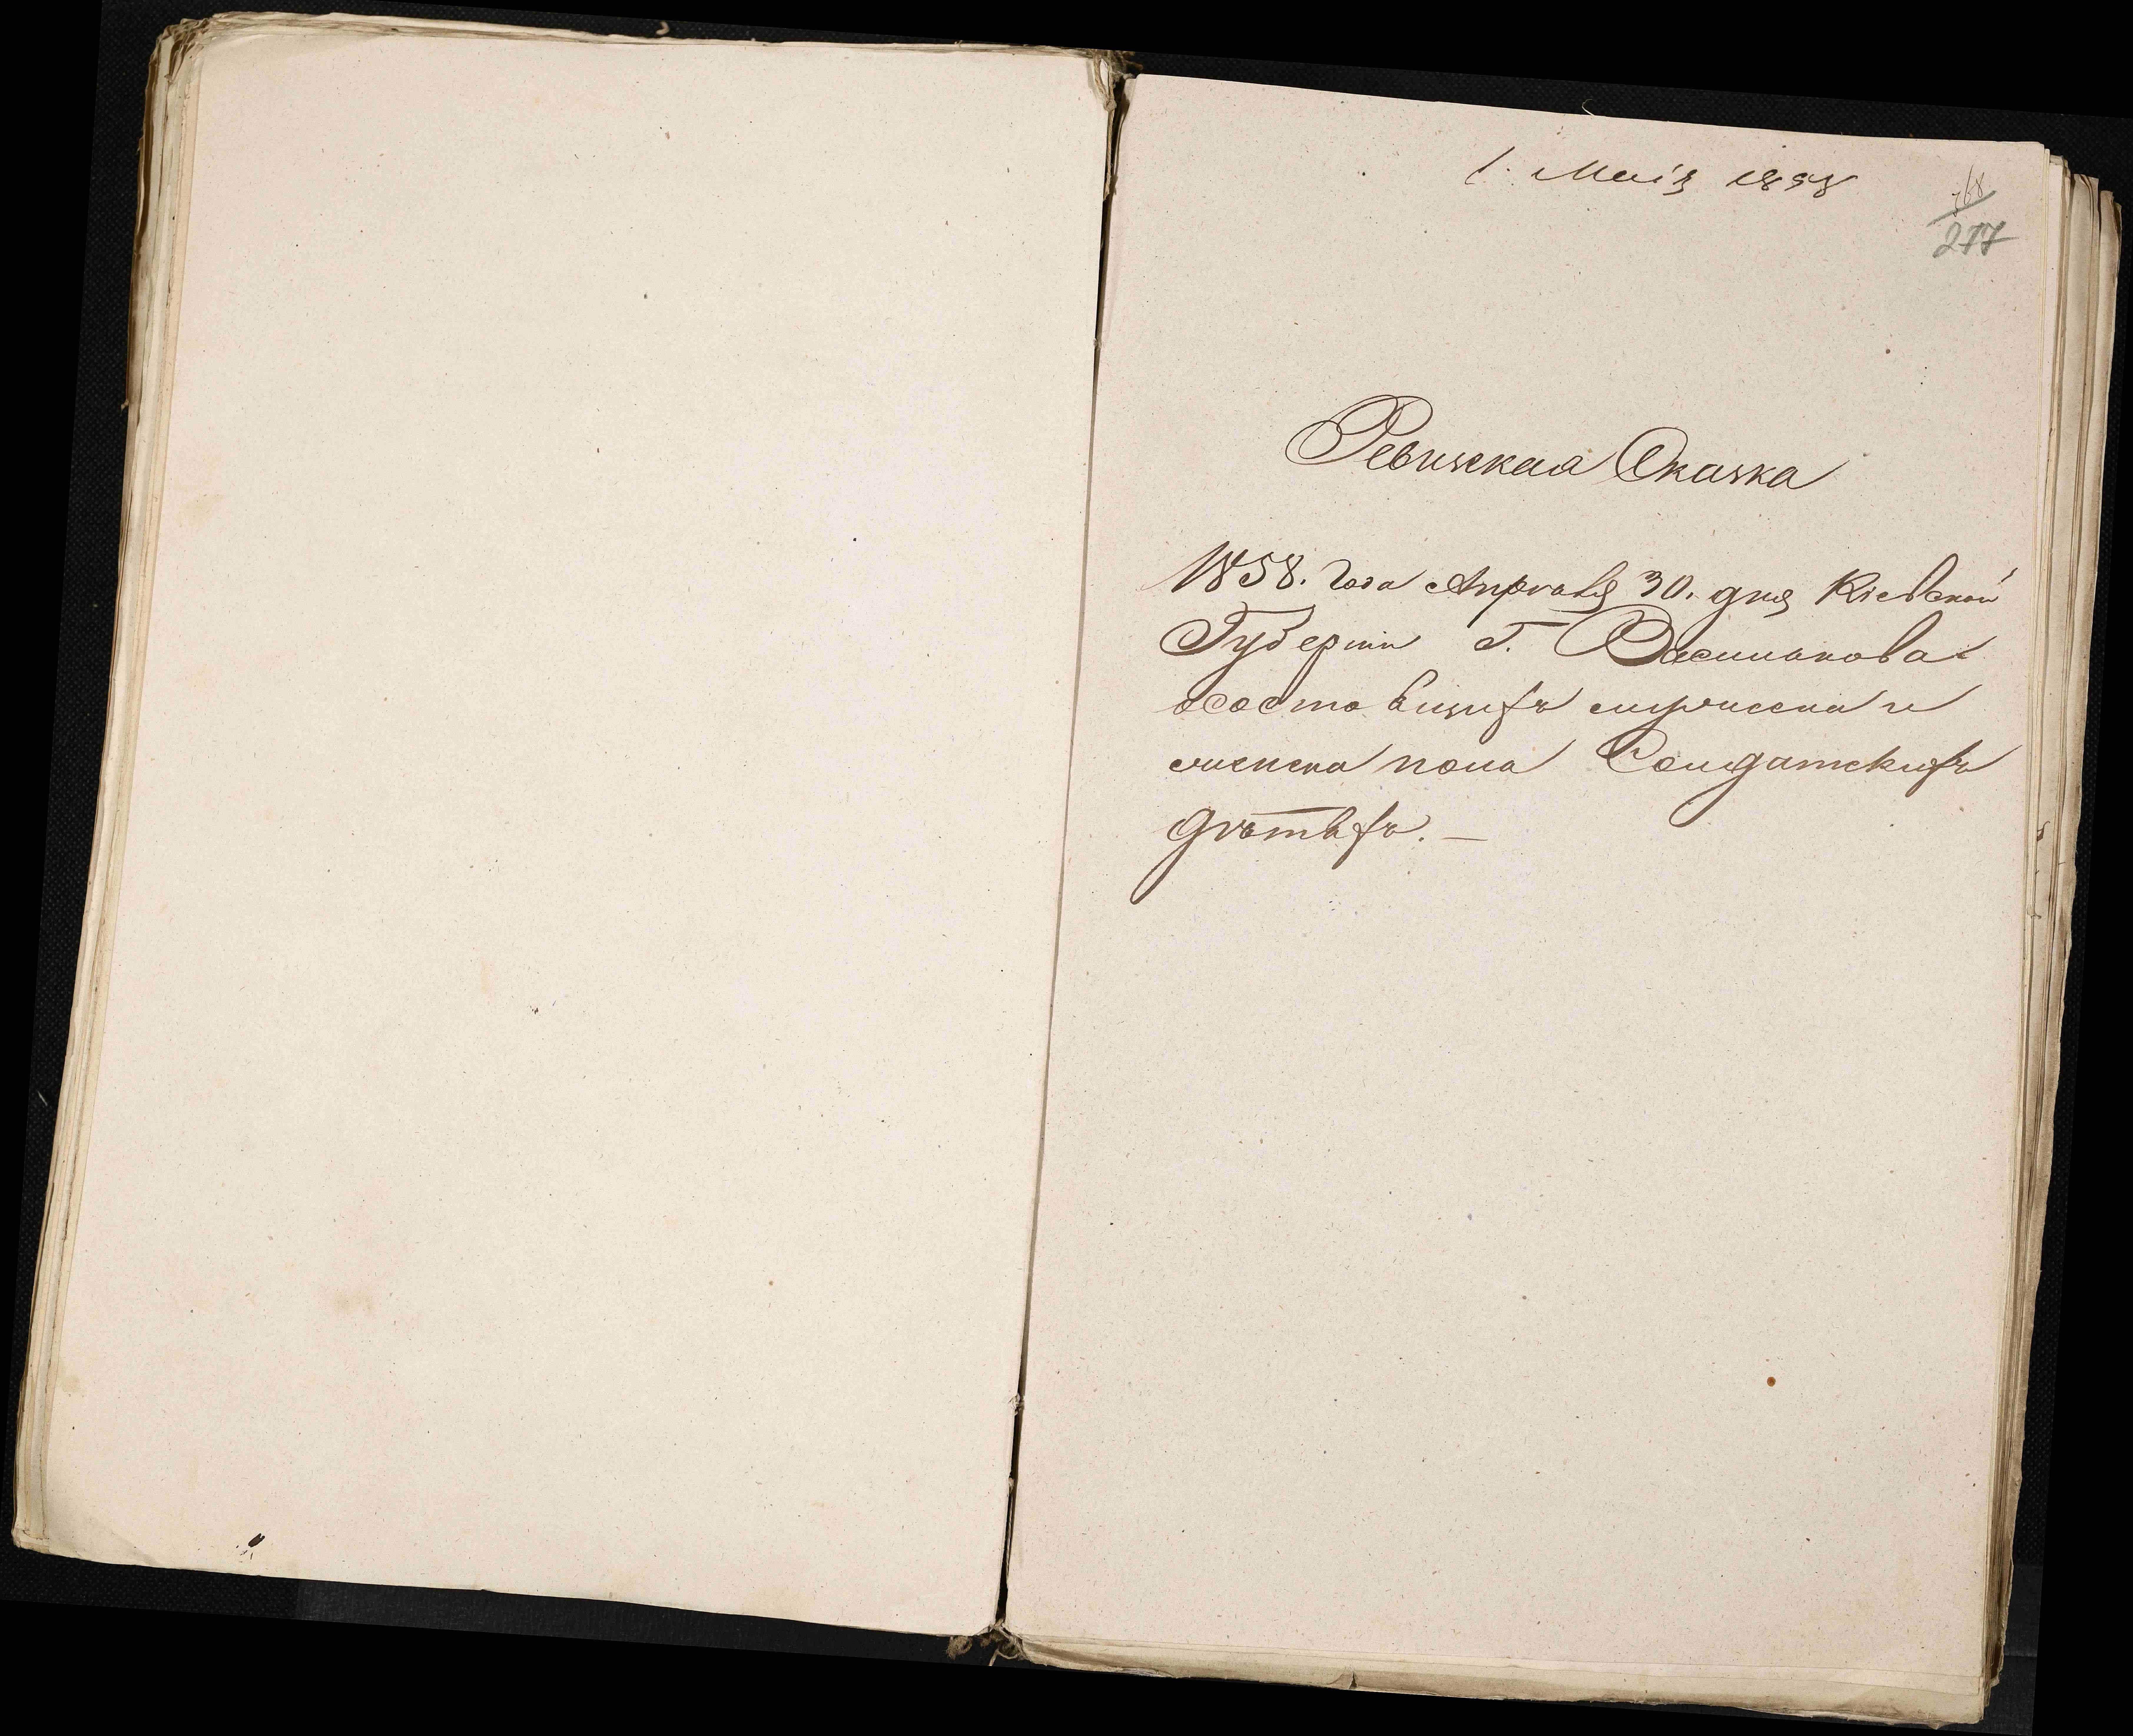 1. Маія 1858
277
Ревизская Сказка
1858. Года Апрѣля 30. дня Кіевской
Губерніи Г. Василькова
о состоящихъ
женска пола Солдатскихъ
дѣтяхъ. —